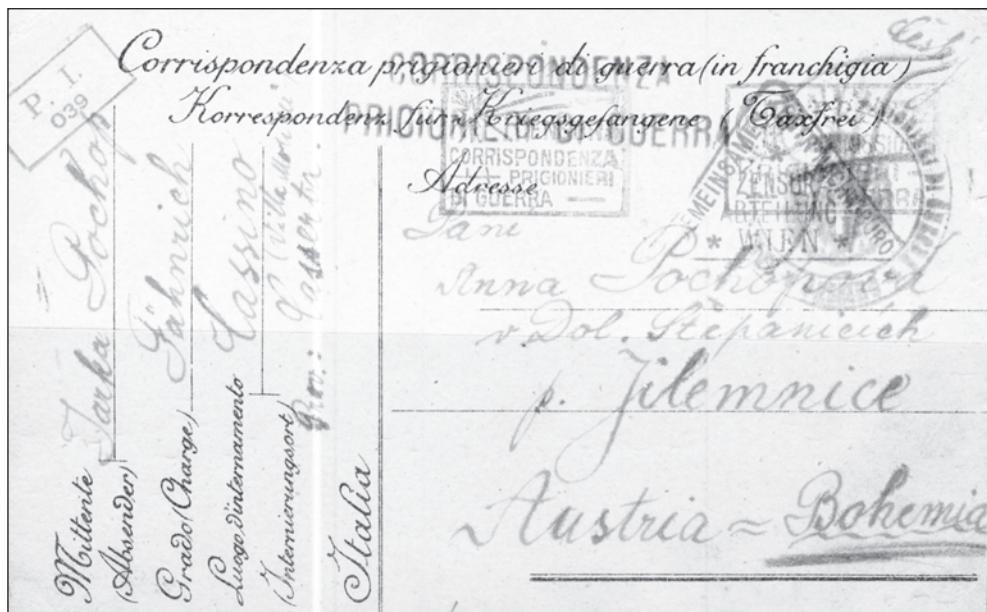 Corrispondenza prigionieri di guerra (in franchigia)
Korrespondenz für Kriegsgefangene (Taxfrei)
CORRISPONDENZA
PRIGIONIERI DI GUERRA
P. I.
039
CORRISPONDENZA
PRIGIONIERI
DI GUERRA
ZENSURA
WIEN
česky
Adresse
Paní
Anna Pochopová
v Dol. Štěpanicích
p. Jilemnice
Austria = Bohemia
Mittente Jarka Pochop
(Absender)
Grado (Charge) Fähnrich
Luogo d'internamento Cassino
(Internierungsort)
Prov: Caserta
Italia